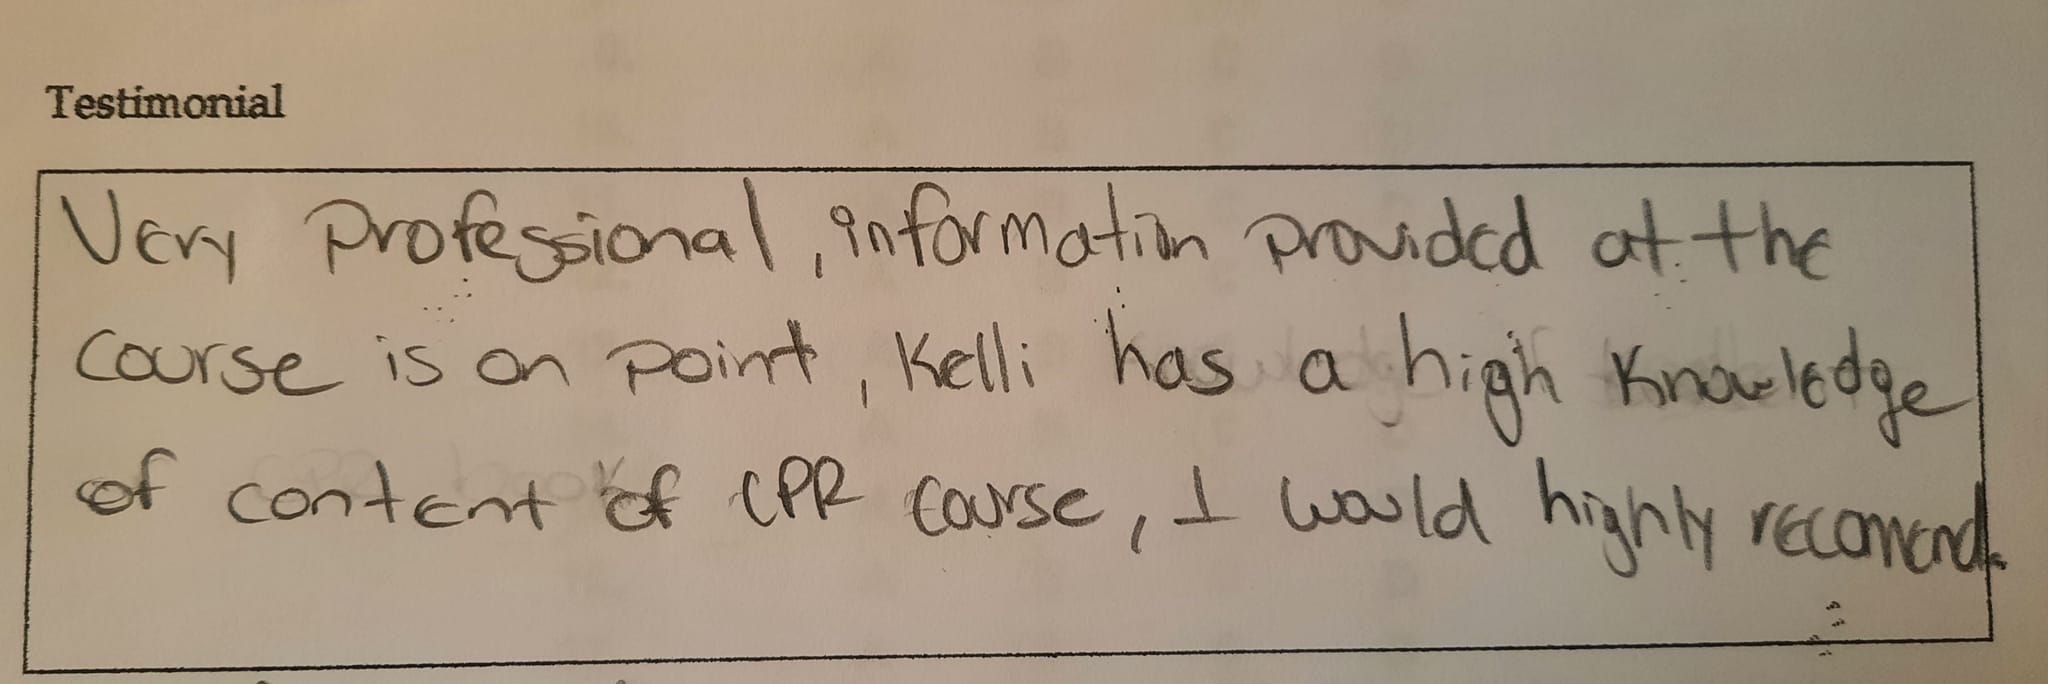 Testimonial
Very professional, information provided at the
course is on point, Kelli has a high knowledge
of content of CPR course, I would highly recomend.